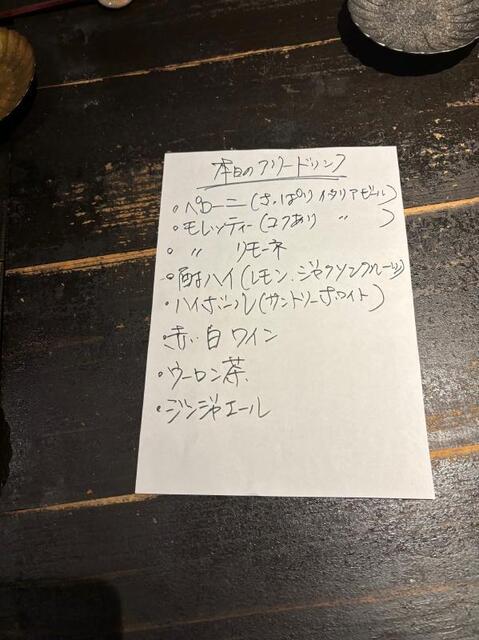 本日のフリードリンク
・ペローニ(さっぱりイタリアビール)
・モレッティー(コクあり 〃 )
・ 〃 リモーネ
・酎ハイ(レモン、ジャクソンフルーツ)
・ハイボール(サントリーホワイト)
・赤・白ワイン
・ウーロン茶
・ジンジャエール